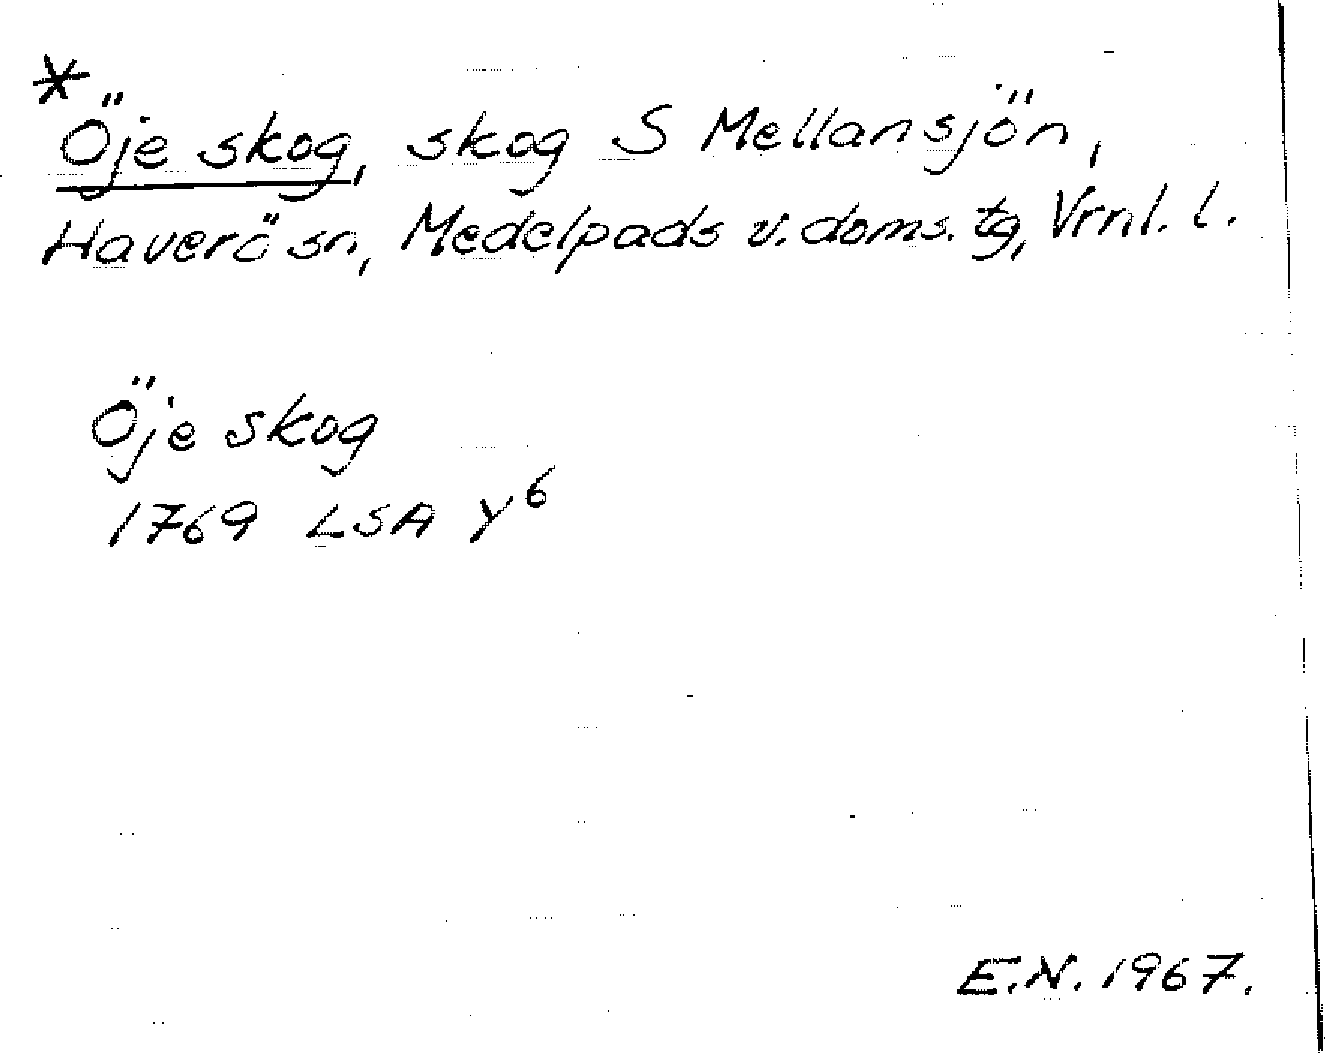 *Öje skog, skog S Mellansjön,
Haverö sn, Medelpads v. doms. tg, Vrnl. l.
Öje skog
1769 LSA Y⁶
E.N. 1967.